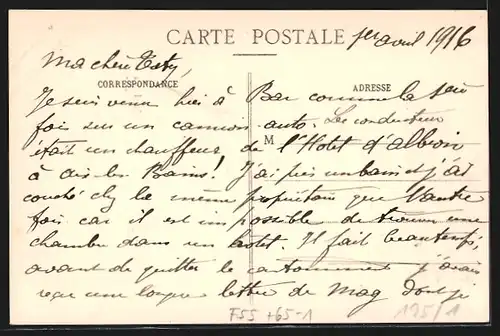 CARTE POSTALE
1er avril 1916
Ma chère Taty,
CORRESPONDANCE
ADRESSE
Je suis venu hier à Bar comme la 1ère
fois sur un camion-auto. Le conducteur
M
était un chauffeur de l'Hotel d'albion
à aix-les-Bains! J'ai pris un bain et j'ai
couché chez le même propriétaire que l'autre
fois car il est impossible de trouver une
chambre dans un hôtel. Il fait beau temps,
avant de quitter le cantonnement j'avais
reçu une longue lettre de Mag dont je
F55 +65-1
135/1